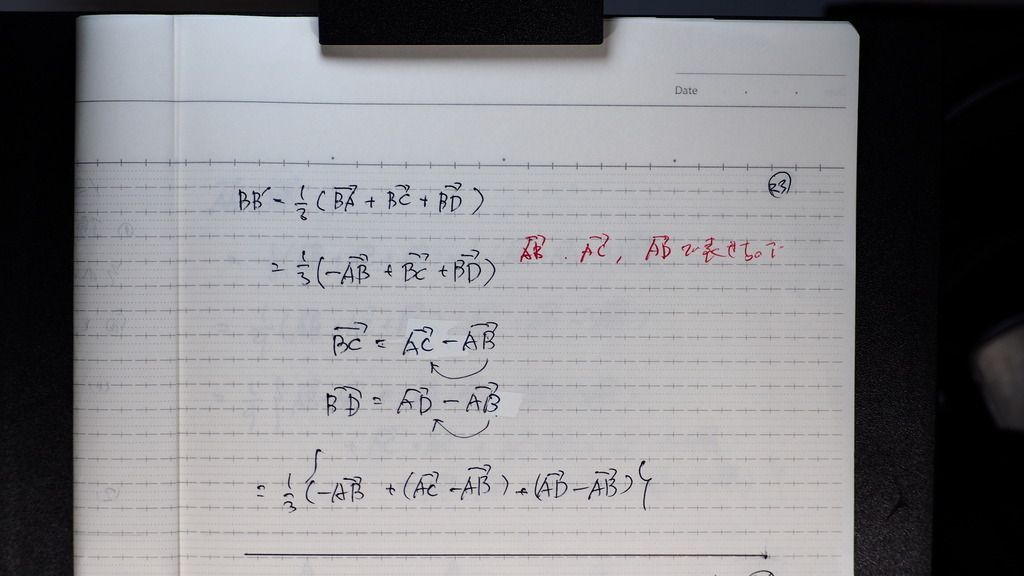 Date
23
BB' = 1/3 (BA→ + BC→ + BD→)
= 1/3 (-AB→ + BC→ + BD→) AB→, AC→, AD→で表せるので
BC→ = AC→ - AB→
BD→ = AD→ - AB→
= 1/3 {-AB→ + (AC→ - AB→) + (AD→ - AB→)}